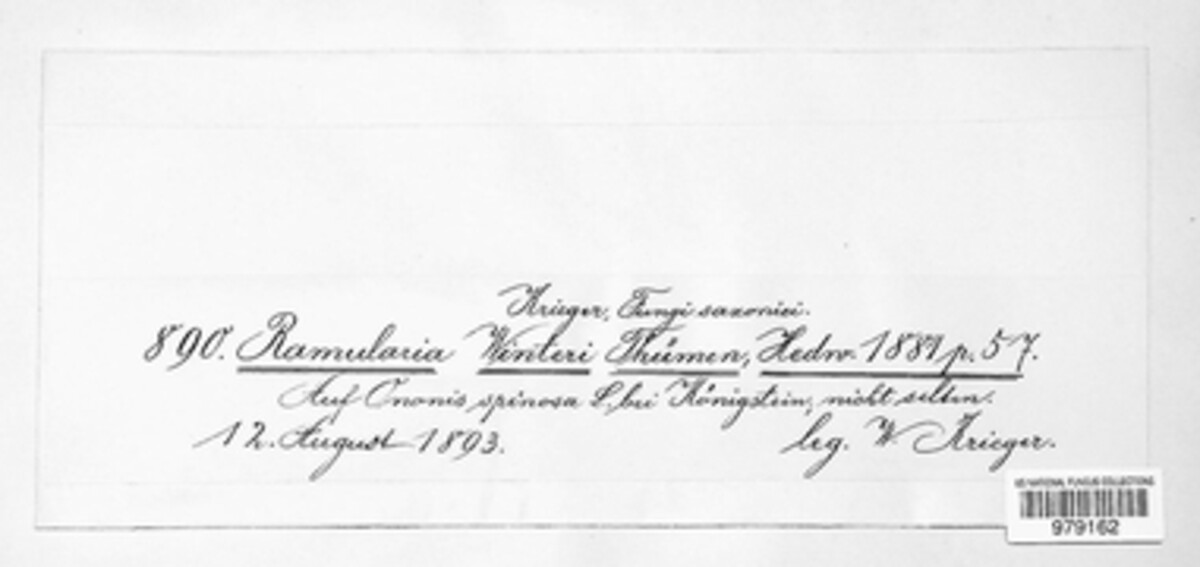 Krieger, Fungi saxonici.
890. Ramularia Winteri Thümen, Hedw. 1881 p. 57.
Auf Ononis spinosa L. bei Königstein, nicht selten.
12. August 1893. leg. W. Krieger.
US NATIONAL FUNGUS COLLECTIONS
979162